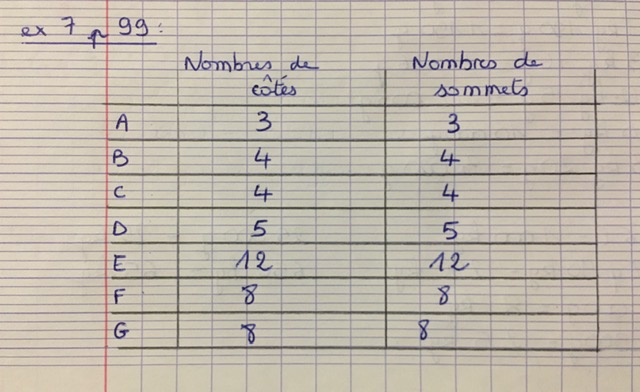 ex 7 p 99 :
Nombres de côtés Nombres de sommets
A 3 3
B 4 4
C 4 4
D 5 5
E 12 12
F 8 8
G 8 8